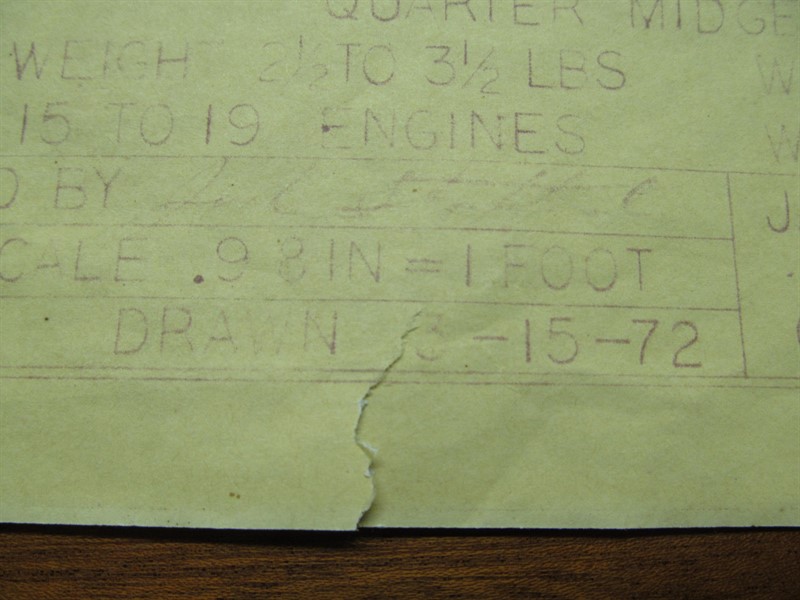 QUARTER MIDGE
WEIGH 2½ TO 3½ LBS W
15 TO 19 ENGINES W
D BY J
CALE .98 IN = 1 FOOT
DRAWN 3-15-72